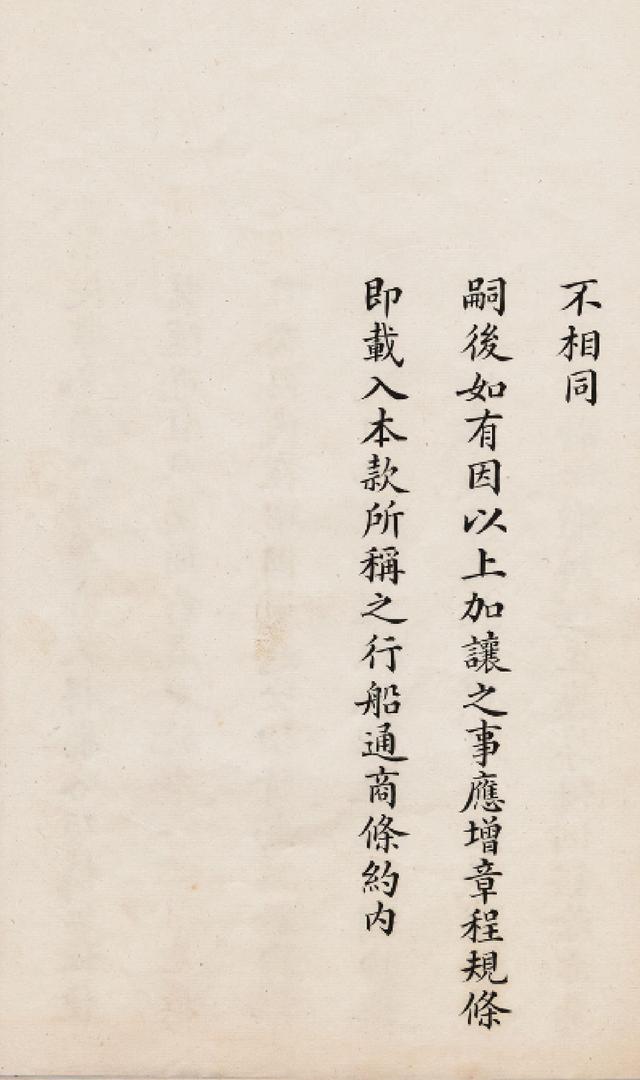 不相同
嗣後如有因以上加讓之事應增章程規條
即載入本款所稱之行船通商條約内